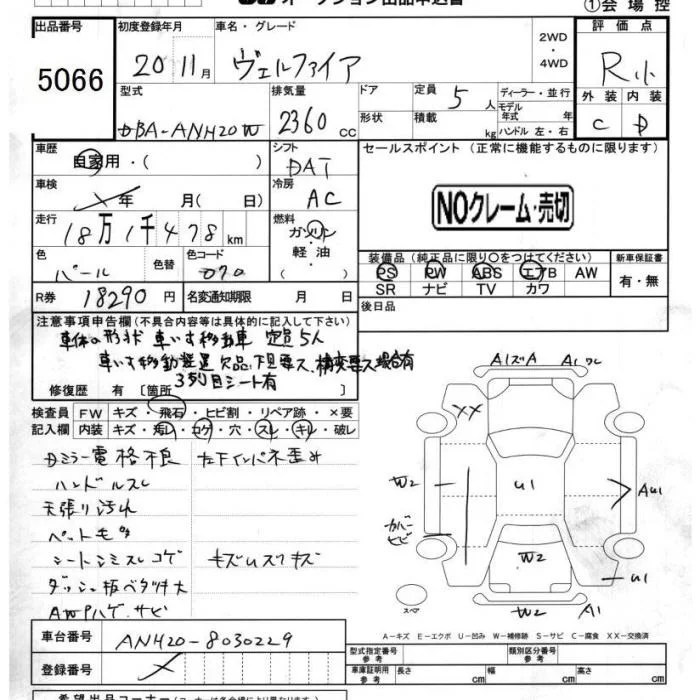 オークション出品申込書
①会場控
出品番号
5066
初度登録年月
20 11月
車名・グレード
ヴェルファイア
2WD
・
4WD
評価点
R小
外装 内装
C D
型式
DBA-ANH20W
排気量
2360 cc
ドア
形状
定員 5人
積載 kg
ディーラー・並行
モデル年式 年
ハンドル 左・右
車歴
自家用・( )
シフト
DAT
セールスポイント (正常に機能するものに限ります)
NOクレーム・売切
車検
年 月( 日)
冷房
AC
走行
18万1千478km
燃料
ガソリン
・
軽油
( )
色
パール
色替
色コード
070
装備品(純正品に限り○をつけてください)
PS PW ABS エアB AW
SR ナビ TV カワ
新車保証書
有・無
R券 18290円
名変通知期限 月 日
後日品
注意事項申告欄(不具合内容等は具体的に記入して下さい)
車体の形状 車いす移動車 定員5人
車いす移動装置欠品 下見要ス、構変要ス場合有
3列目シート有
修復歴 有 [箇所 ]
検査員記入欄
FW キズ・飛石・ヒビ割・リペア跡・×要
内装 キズ・汚レ・コゲ・穴・スレ・キレ・破レ
Dミラー電格不良 左下インパネ歪み
ハンドルスレ
天張り汚れ
ペットモウ
シートシミスレコゲ
ダッシュ板ベタツキ大
AWハゲ・サビ
A1 A1
XX
W2 U1 AU1
カバーヒビ
W2 U1
W2 A1
スペア
A-キズ E-エクボ U-凹み W-補修跡 S-サビ C-腐食 XX-交換済
車台番号 ANH20-8030229
登録番号
型式指定番号 参考
類別区分番号 参考
車庫証明用 参考 長さ cm 幅 cm 高さ cm
希望出品コーナー